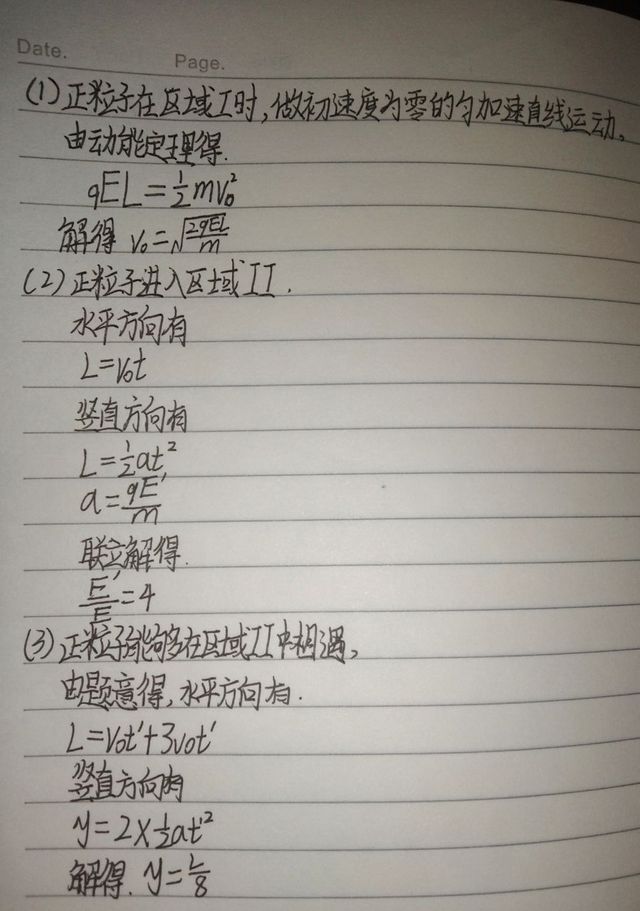 Date.
Page.
(1)正粒子在区域I时,做初速度为零的匀加速直线运动。
由动能定理得.
qEL=½mv₀²
解得 v₀=√(2qEL/m)
(2)正粒子进入区域II.
水平方向有
L=v₀t
竖直方向有
L=½at²
a=qE′/m
联立解得.
E′/E=4
(3)正粒子能够在区域II中相遇,
由题意得,水平方向有.
L=v₀t′+3v₀t′
竖直方向有
y=2×½at′²
解得. y=L/8